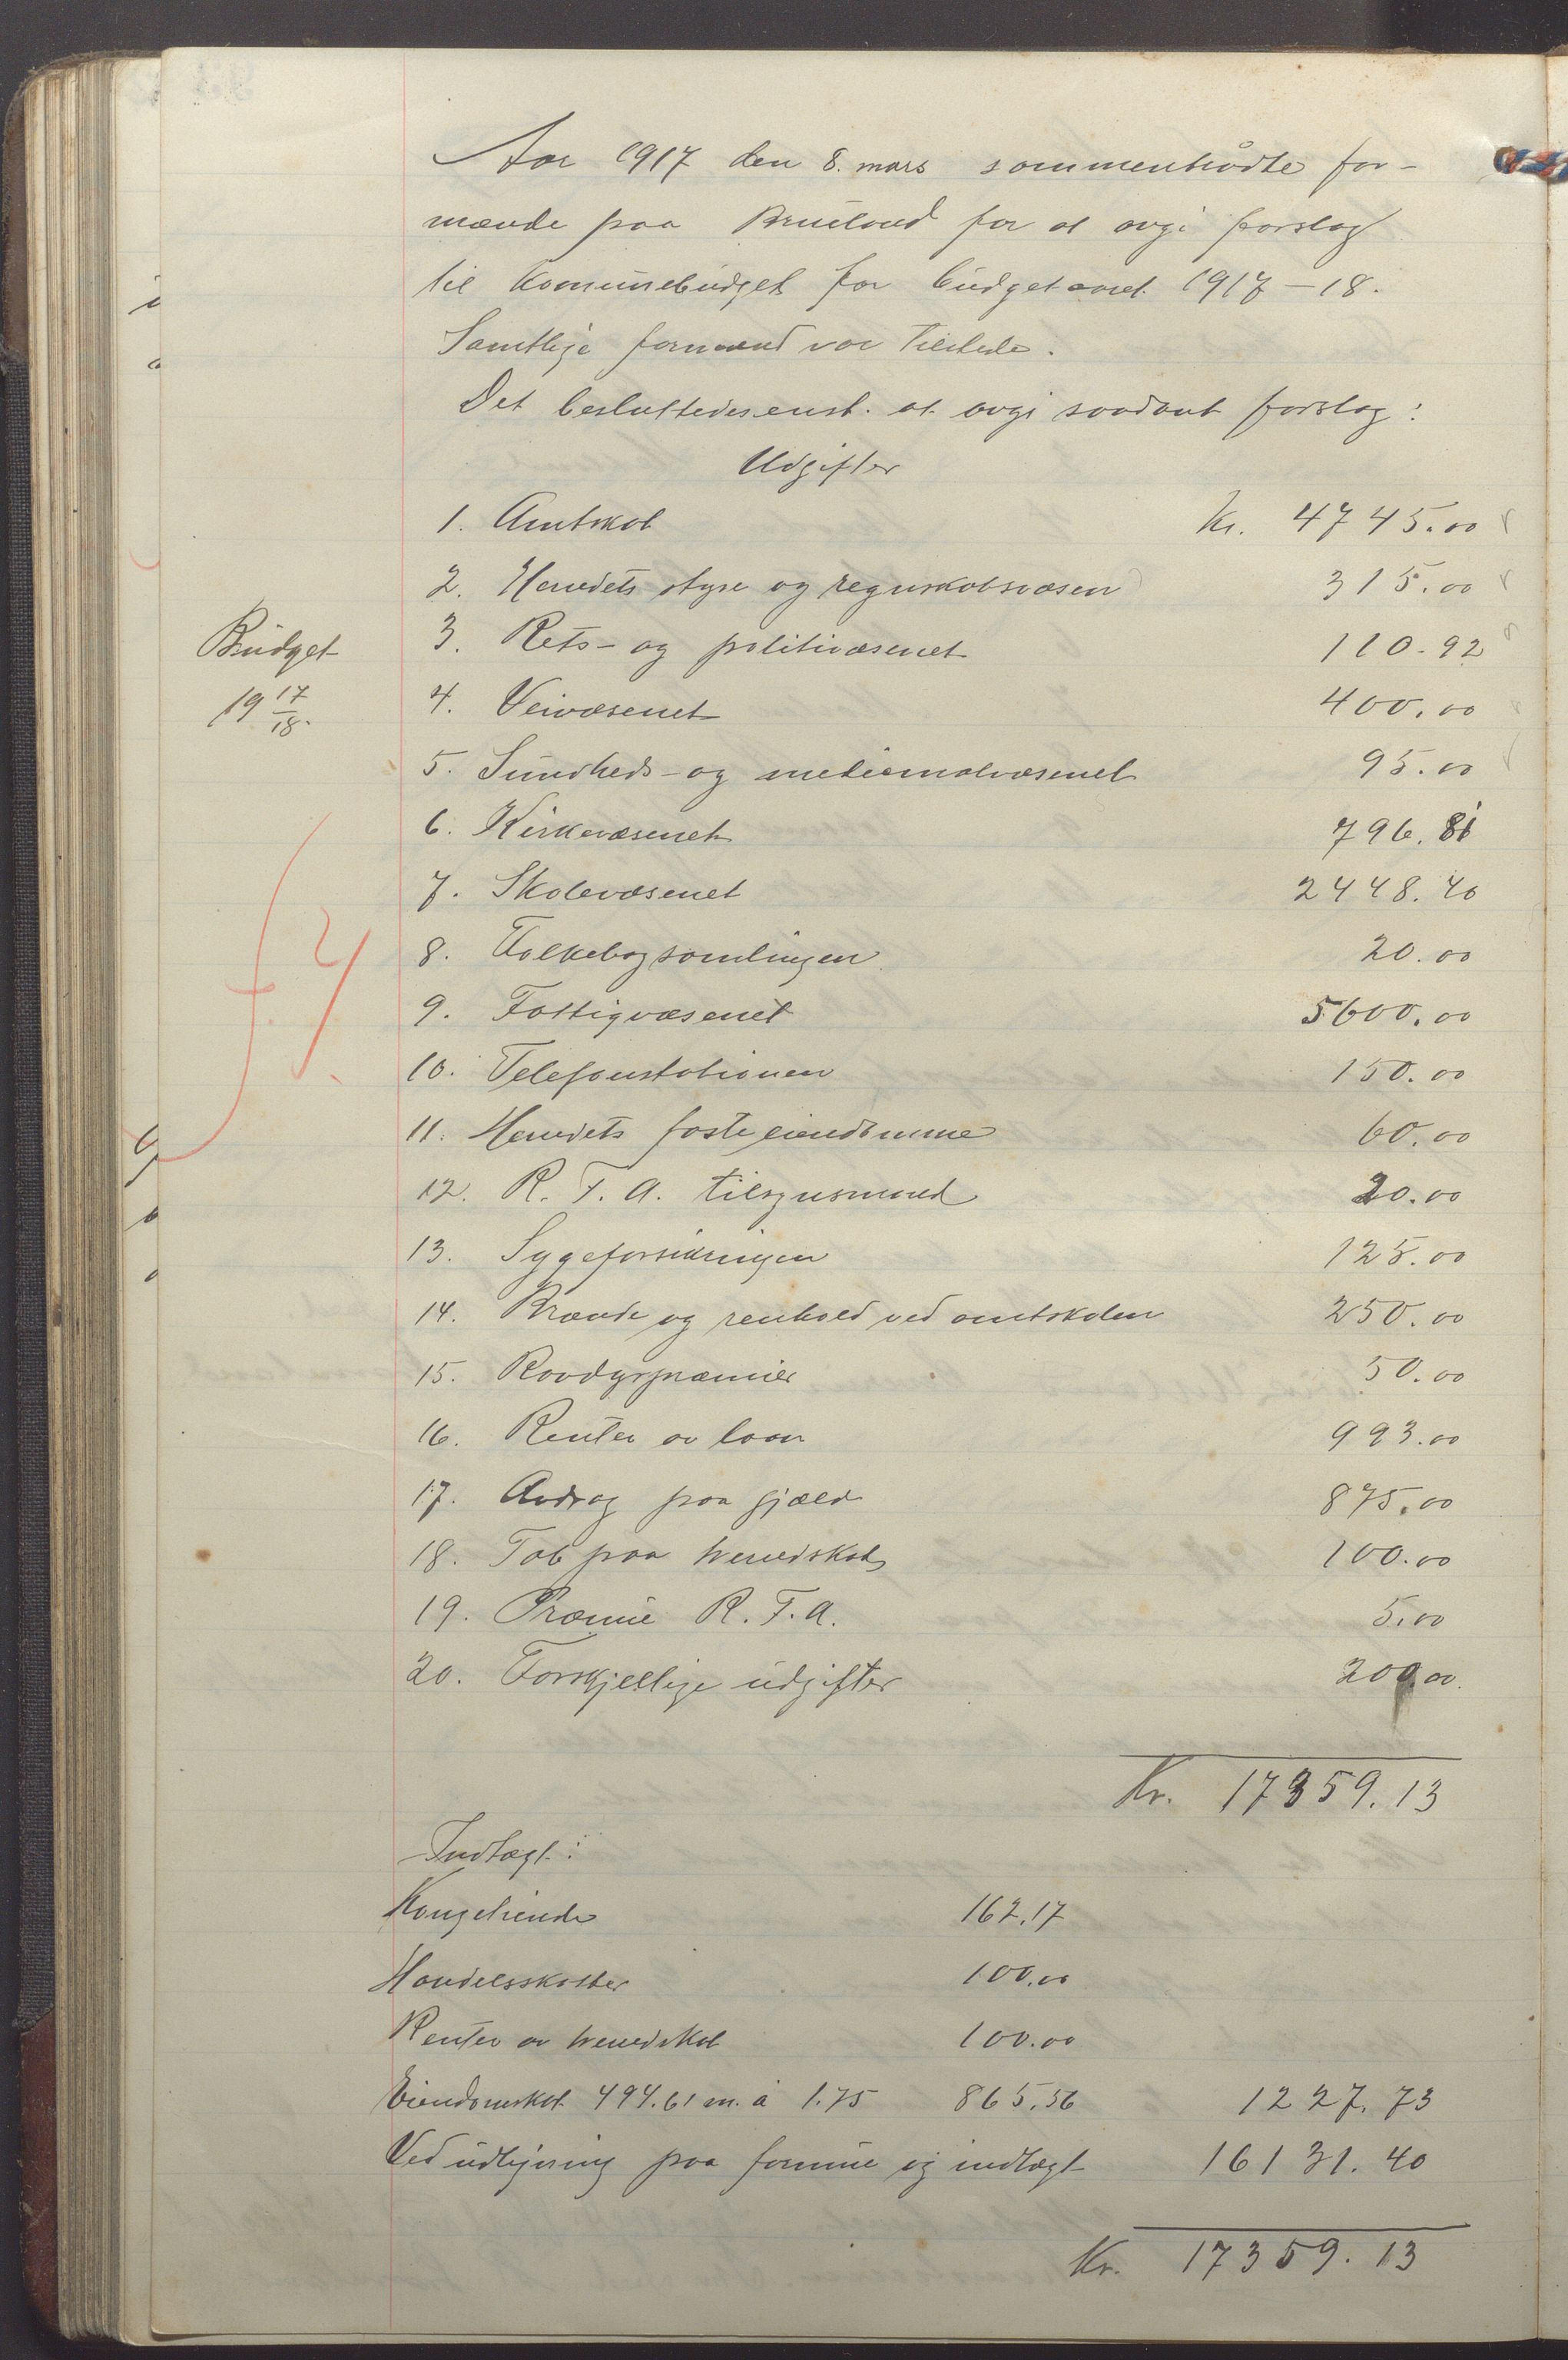 Aar 1917 den 8. mars sammentrådte for-
mænde paa Brueland for at avgi forslag
til kommunebudget for budgetaaret 1917–18.
Samtlige formænd var tilstede.
Det besluttedes enst. at avgi saadant forslag:
Udgifter
1. Amtskat Kr. 4745.00
2. Herredets styre og regnskabsvæsen 315.00
Budget
19 17/18.
3. Rets- og politivæsenet 110.92
4. Veivæsenet 400.00
5. Sundheds- og medicinalvæsenet 95.00
6. Kirkevæsenet 796.81
7. Skolevæsenet 2448.40
8. Folkebogsamlingen 20.00
9. Fattigvæsenet 5600.00
10. Telefonstationen 150.00
11. Herredets faste eiendomme 60.00
12. R. F. A. tilsynsmænd 20.00
13. Sygeforsikringen 125.00
14. Brænde og renhold ved amtskolen 250.00
15. Rovdyrpræmier 50.00
16. Renter av laan 993.00
17. Avdrag paa gjæld 875.00
18. Tab paa herredskat 100.00
19. Præmie R. F. A. 5.00
20. Forskjellige udgifter 200.00
Kr. 17359.13
Indtægt:
Kongetiende 162.17
Handelsskatter 100.00
Renter av herredskat 100.00
Eiendomskat 494.61 m. à 1.75 865.56 1227.73
Ved udligning paa formue og indtægt 16131.40
Kr. 17359.13